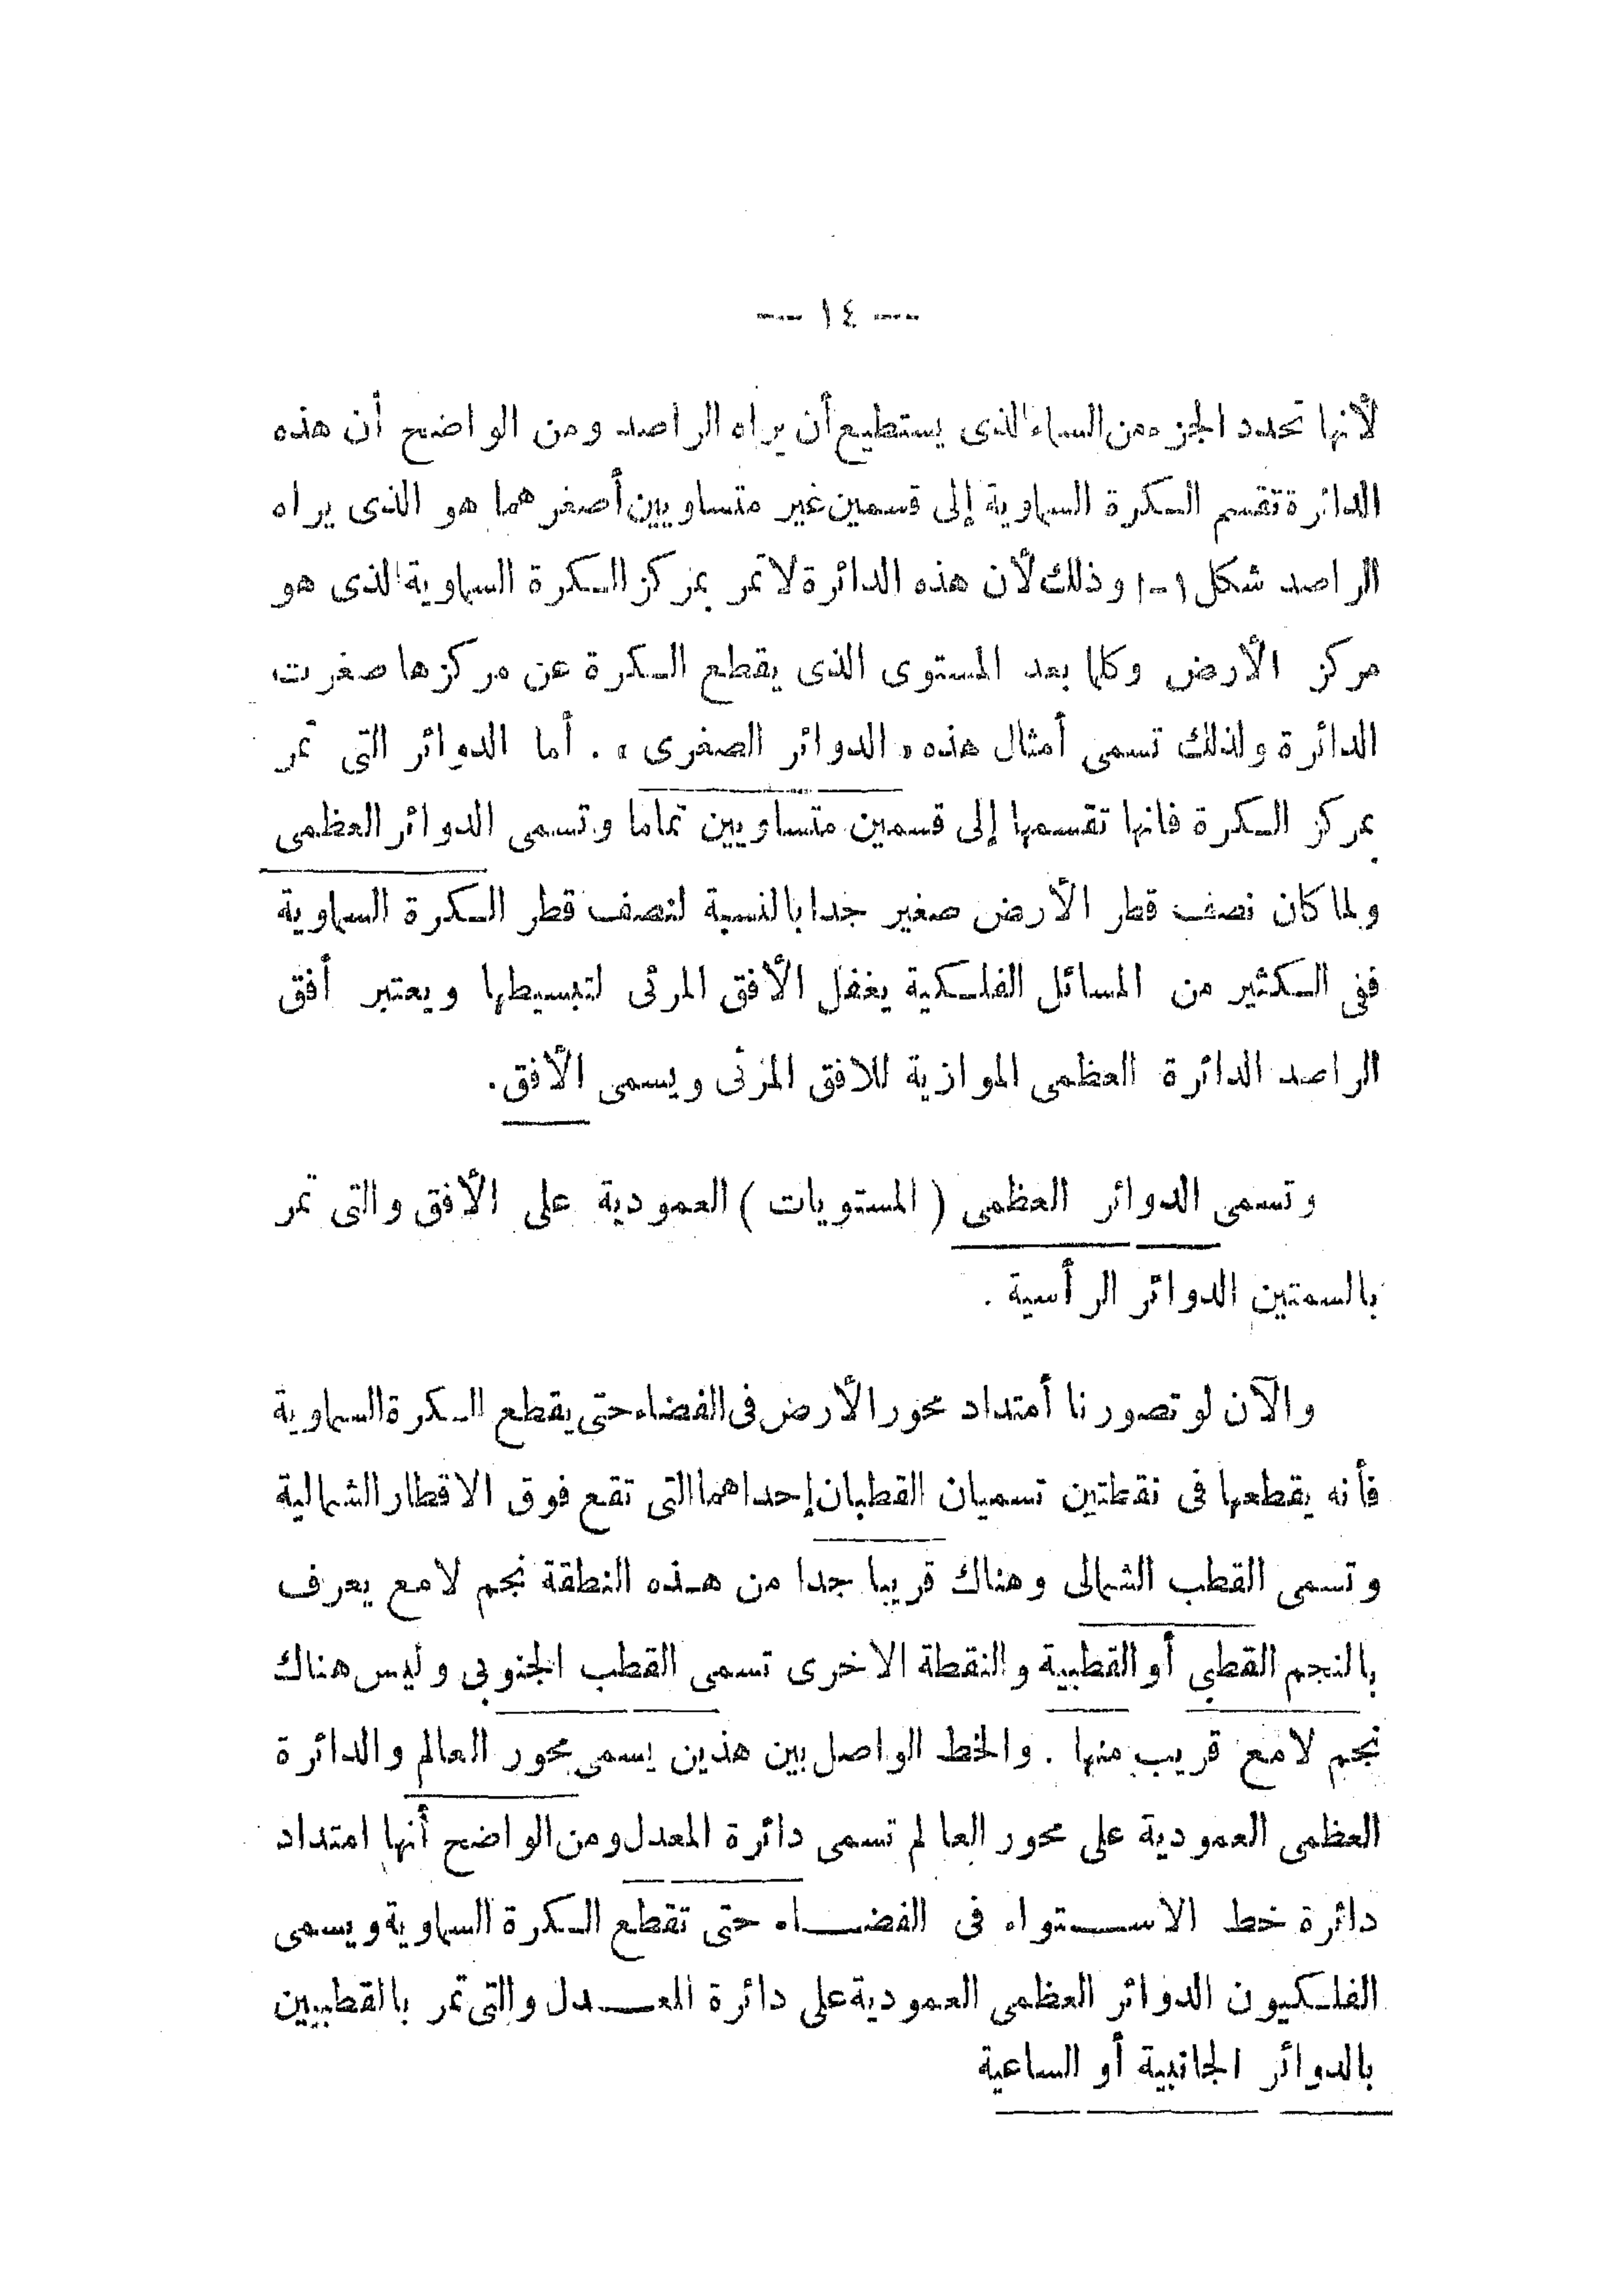 — ١٤ —
لأنها تحدد الجزء من السماء الذى يستطيع أن يراه الراصد ومن الواضح أن هذه
الدائرة تقسم الكرة السماوية إلى قسمين غير متساويين أصغرهما هو الذى يراه
الراصد شكل ١-١ وذلك لأن هذه الدائرة لا تمر بمركز الكرة السماوية الذى هو
مركز الأرض وكلما بعد المستوى الذى يقطع الكرة عن مركزها صغرت
الدائرة ولذلك تسمى أمثال هذه « الدوائر الصغرى » . أما الدوائر التى تمر
بمركز الكرة فانها تقسمها إلى قسمين متساويين تماما وتسمى الدوائر العظمى
ولما كان نصف قطر الأرض صغير جدا بالنسبة لنصف قطر الكرة السماوية
ففى الكثير من المسائل الفلكية يغفل الأفق المرئى لتبسيطها ويعتبر أفق
الراصد الدائرة العظمى الموازية للافق المرئى ويسمى الأفق .
وتسمى الدوائر العظمى ( المستويات ) العمودية على الأفق والتى تمر
بالسمتين الدوائر الرأسية .
والآن لو تصورنا أمتداد محور الأرض فى الفضاء حتى يقطع الكرة السماوية
فأنه يقطعها فى نقطتين تسميان القطبان إحداهما التى تقع فوق الاقطار الشمالية
وتسمى القطب الشمالى وهناك قريبا جدا من هذه النطقة نجم لامع يعرف
بالنجم القطبى أو القطبية والنقطة الاخرى تسمى القطب الجنوبى وليس هناك
نجم لامع قريب منها . والخط الواصل بين هذين يسمى محور العالم والدائرة
العظمى العمودية على محور العالم تسمى دائرة المعدل ومن الواضح أنها امتداد
دائرة خط الاستواء فى الفضاء حتى تقطع الكرة السماوية ويسمى
الفلكيون الدوائر العظمى العمودية على دائرة المعدل والتى تمر بالقطبيين
بالدوائر الجانبية أو الساعية